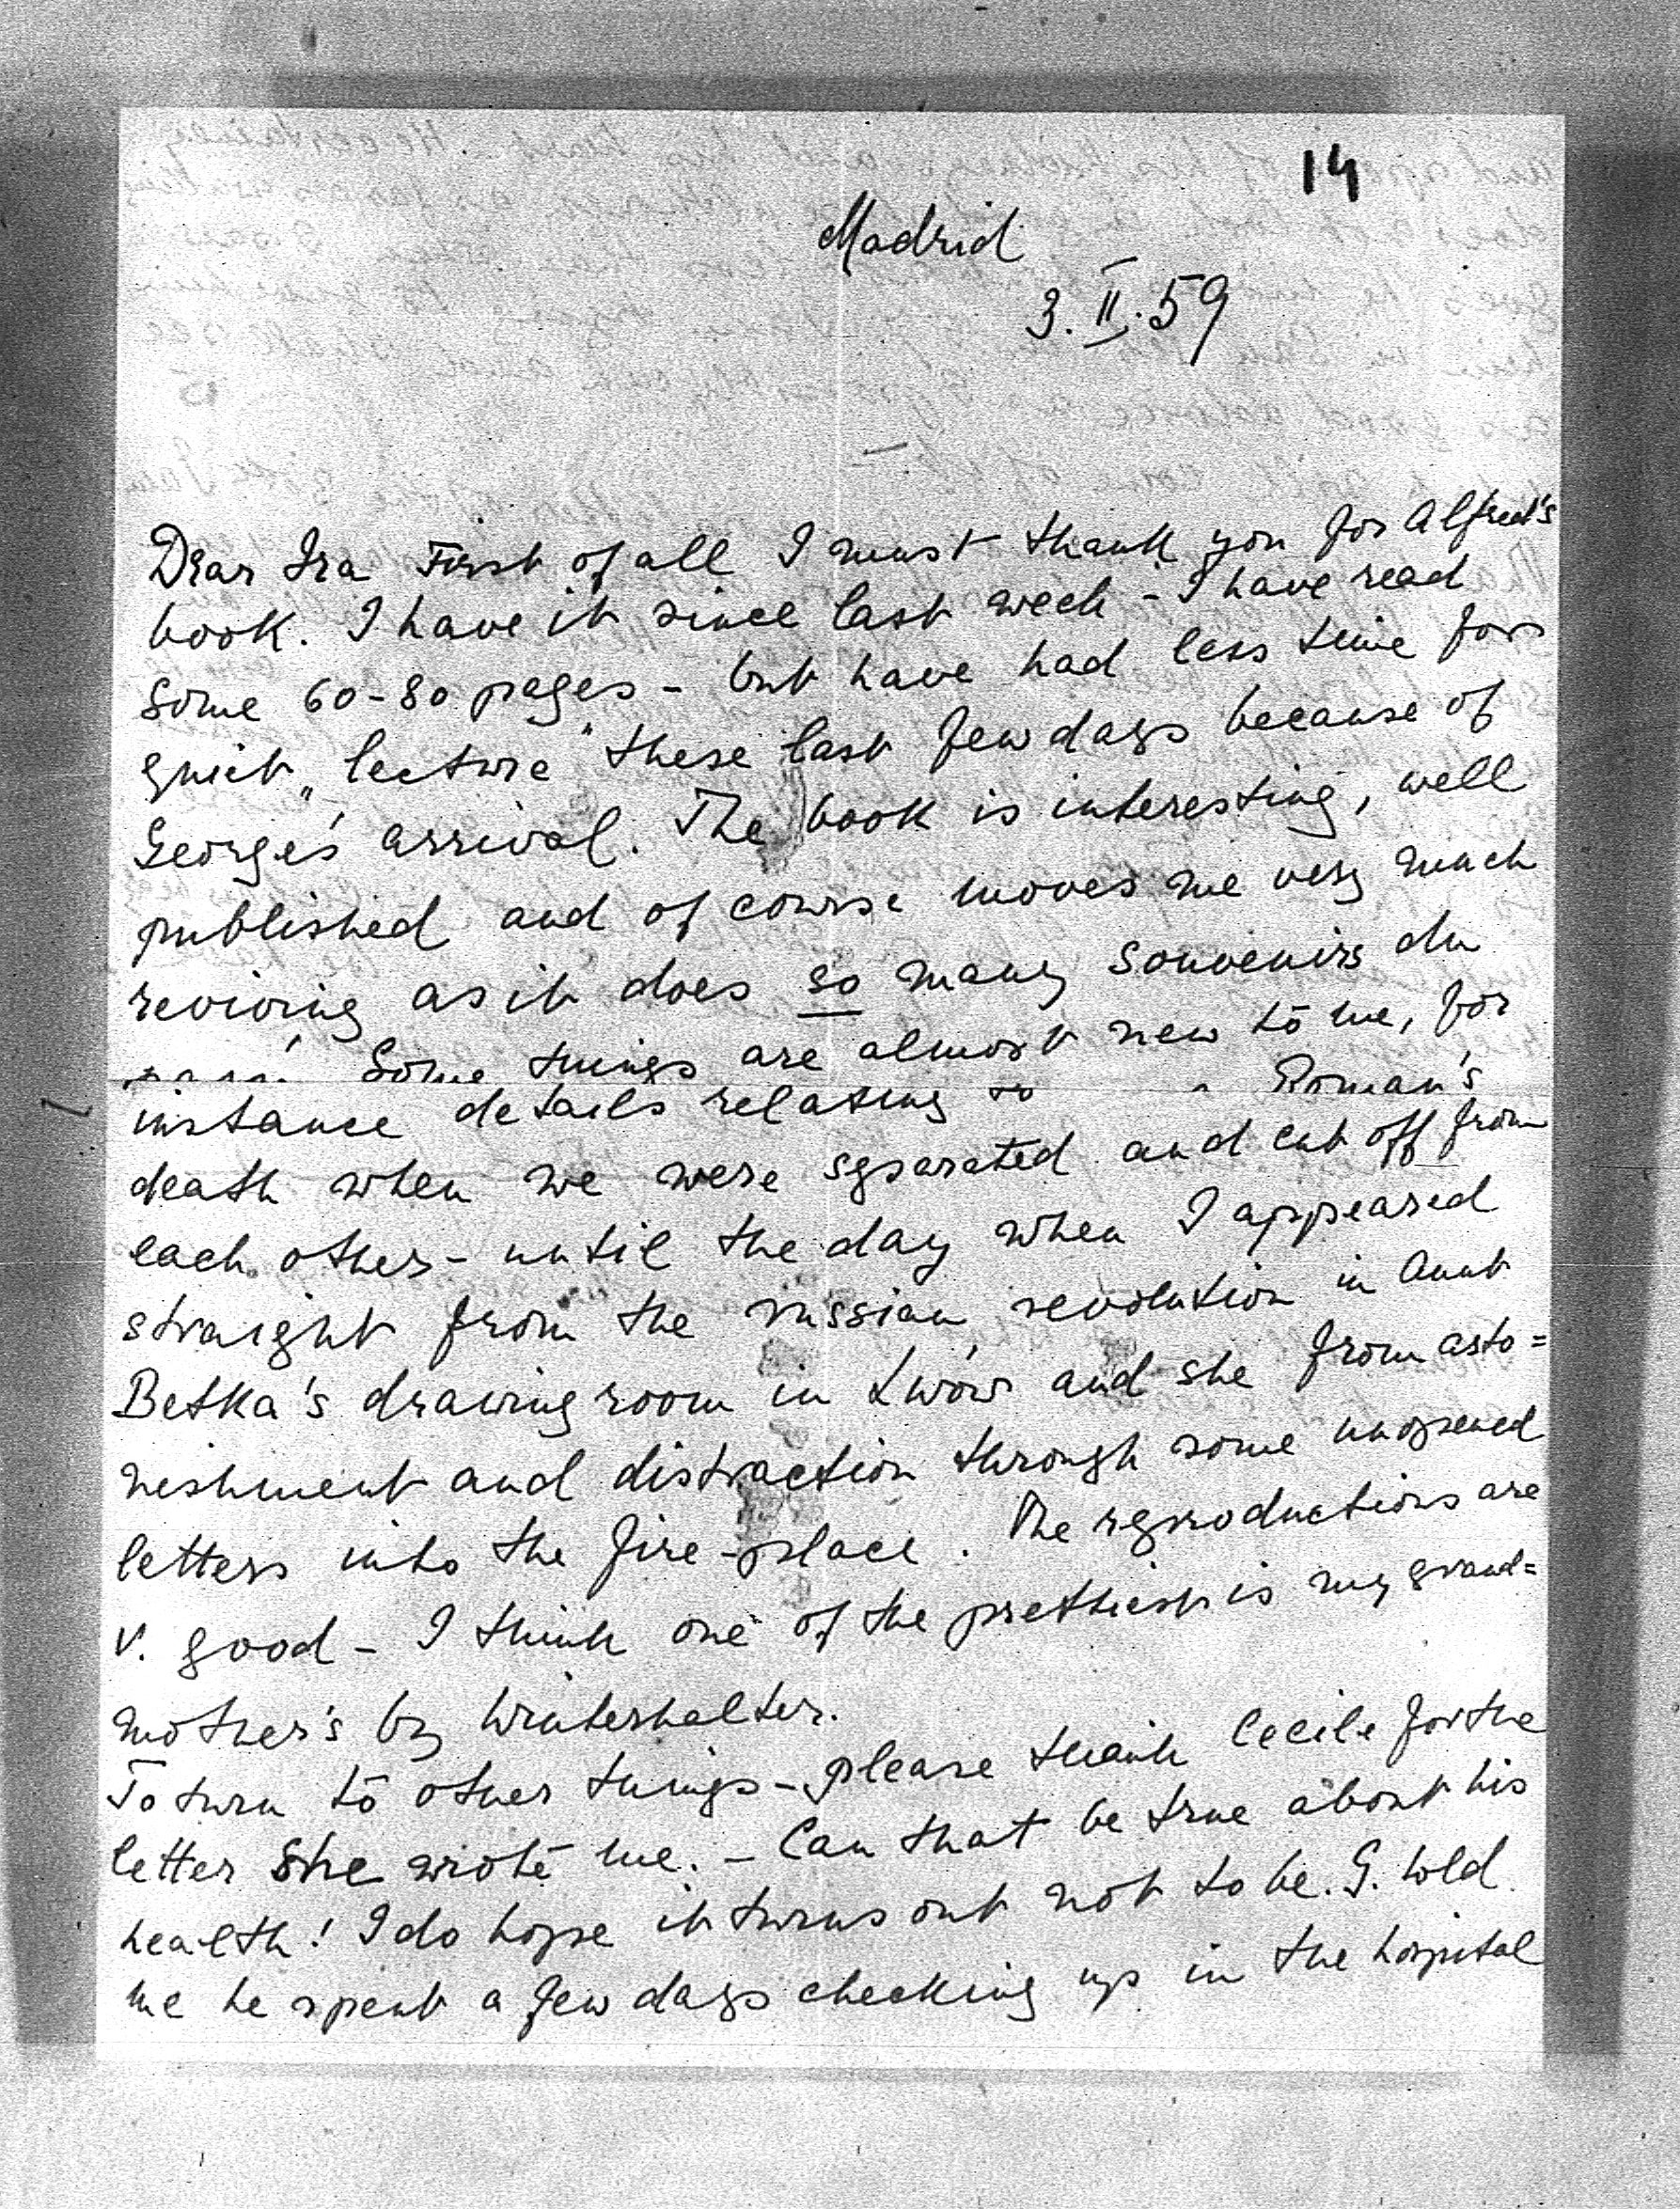 14
Madrid
3.II.59
Dear Ira First of all I must thank you for Alfred's
book. I have it since last week - I have read
some 60-80 pages - but have had less time for
quiet „lecture" these last few days because of
George's arrival. The book is interesting, well
published and of course moves me very much
reviving as it does so many souvenirs du
Some things are almost new to me, for
instance details relating to Roman's
death when we were separated and cut off from
each other - until the day when I appeared
straight from the russian revolution in Aunt
Betka's drawing room in Lwów and she from asto=
nishment and distraction through some unopened
letters into the fire-place. The reproductions are
v. good - I think one of the prettiest is my grand=
mother's by Winterhalter.
To turn to other things - please thank Cecile for the
letter she wrote me. - Can that be true about his
health! I do hope it turns out not to be. G. told
me he spent a few days checking up in the hospital